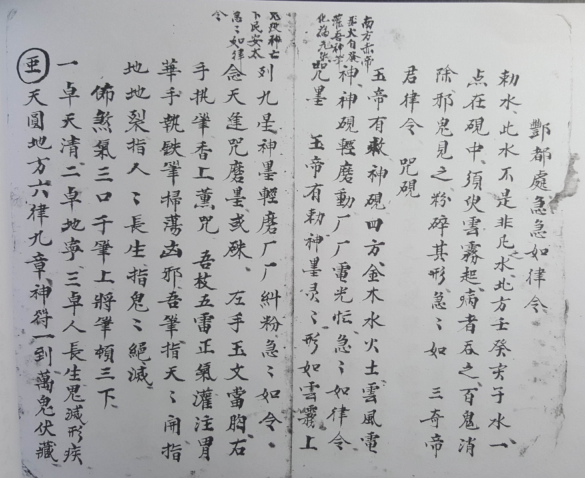 酆都處急急如律令
勅水此水不是非凡水北方壬癸亥子水一
点在硯中須臾雲霧起病者吞之百鬼消
除邪鬼見之粉碎其形急〻如 三奇帝
君律令 咒硯
玉帝有勅神硯四方金木水火土雲風電
神神硯輕磨動厂厂電光忶急〻如律令
咒墨 玉帝有勅神墨灵〻形如雲霧上
南方赤帝
灌吾神水
鬼伏神亡
下民安太
急〻如律
令
列九星神墨輕磨厂厂糾粉急〻如令
念天蓬咒磨墨或硃 左手玉文當胸右
手执筆香上薰咒 吾枝五雷正氣灌注胃
華手執鉄筆掃蕩凶邪吾筆指天〻開指
地地裂指人〻長生指鬼〻絕滅
佈煞氣三口于筆上將筆頓三下
一卓天清二卓地寧三卓人長生鬼滅形疾
天圓地方六律九章神符一到萬鬼伏藏